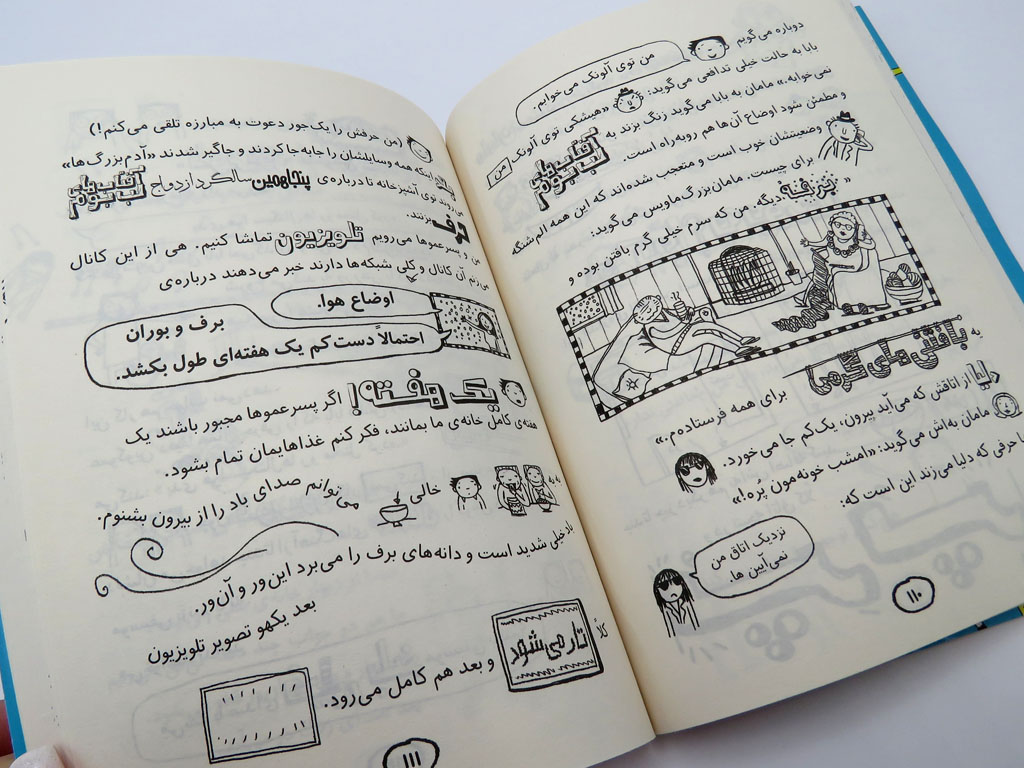 دوباره می‌گویم
من توی آلونک می‌خوابم.
بابا به حالت خیلی تدافعی می‌گوید: «هیشکی توی آلونک من
نمی‌خوابه.» مامان به بابا می‌گوید زنگ بزند به آفتاب‌های لب بوم
و مطمئن شود اوضاع آن‌ها هم روبه‌راه است.
وضعیتشان خوب است و متعجب شده‌اند که این همه الم‌شنگه
برای چیست. مامان‌بزرگ ماویس می‌گوید:
« برفه دیگه. من که سرم خیلی گرم بافتن بوده و
به بافتنی های گرمی برای همه فرستاده‌م.»
دلیا از اتاقش که می‌آید بیرون، یک‌کم جا می‌خورد.
مامان به‌اش می‌گوید: «امشب خونه‌مون پُره!»
حرفی که دلیا می‌زند این است که:
نزدیک اتاق من
نمی‌آیین ها.
۱۱۰
(من حرفش را یک‌جور دعوت به مبارزه تلقی می‌کنم!)
اینکه همه وسایلشان را جابه‌جا کردند و جاگیر شدند «آدم‌بزرگ‌ها»
می‌روند توی آشپزخانه تا درباره‌ی پنجاهمین سالگرد ازدواج آفتاب‌های لب بوم
حرف بزنند.
من و پسرعموها می‌رویم تلویزیون تماشا کنیم. هی از این کانال
می‌زنم آن کانال و کلی شبکه‌ها دارند خبر می‌دهند درباره‌ی
اوضاع هوا.
برف و بوران
احتمالاً دست کم یک هفته‌ای طول بکشد.
یک هفته! اگر پسرعموها مجبور باشند یک
هفته‌ی کامل خانه‌ی ما بمانند، فکر کنم غذاهایمان تمام بشود.
به به
خالی می‌توانم صدای باد را از بیرون بشنوم.
باد خیلی شدید است و دانه‌های برف را می‌برد این‌ور و آن‌ور.
بعد یکهو تصویر تلویزیون
کلاً تار می‌شود
و بعد هم کامل می‌رود.
۱۱۱